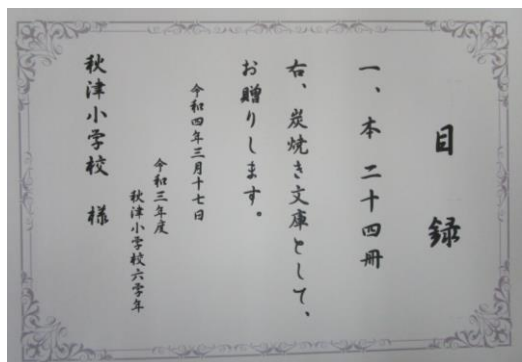 目録
一、本 二十四冊
右、炭焼き文庫として、
お贈りします。
令和四年三月十七日
令和三年度
秋津小学校六学年
秋津小学校 様